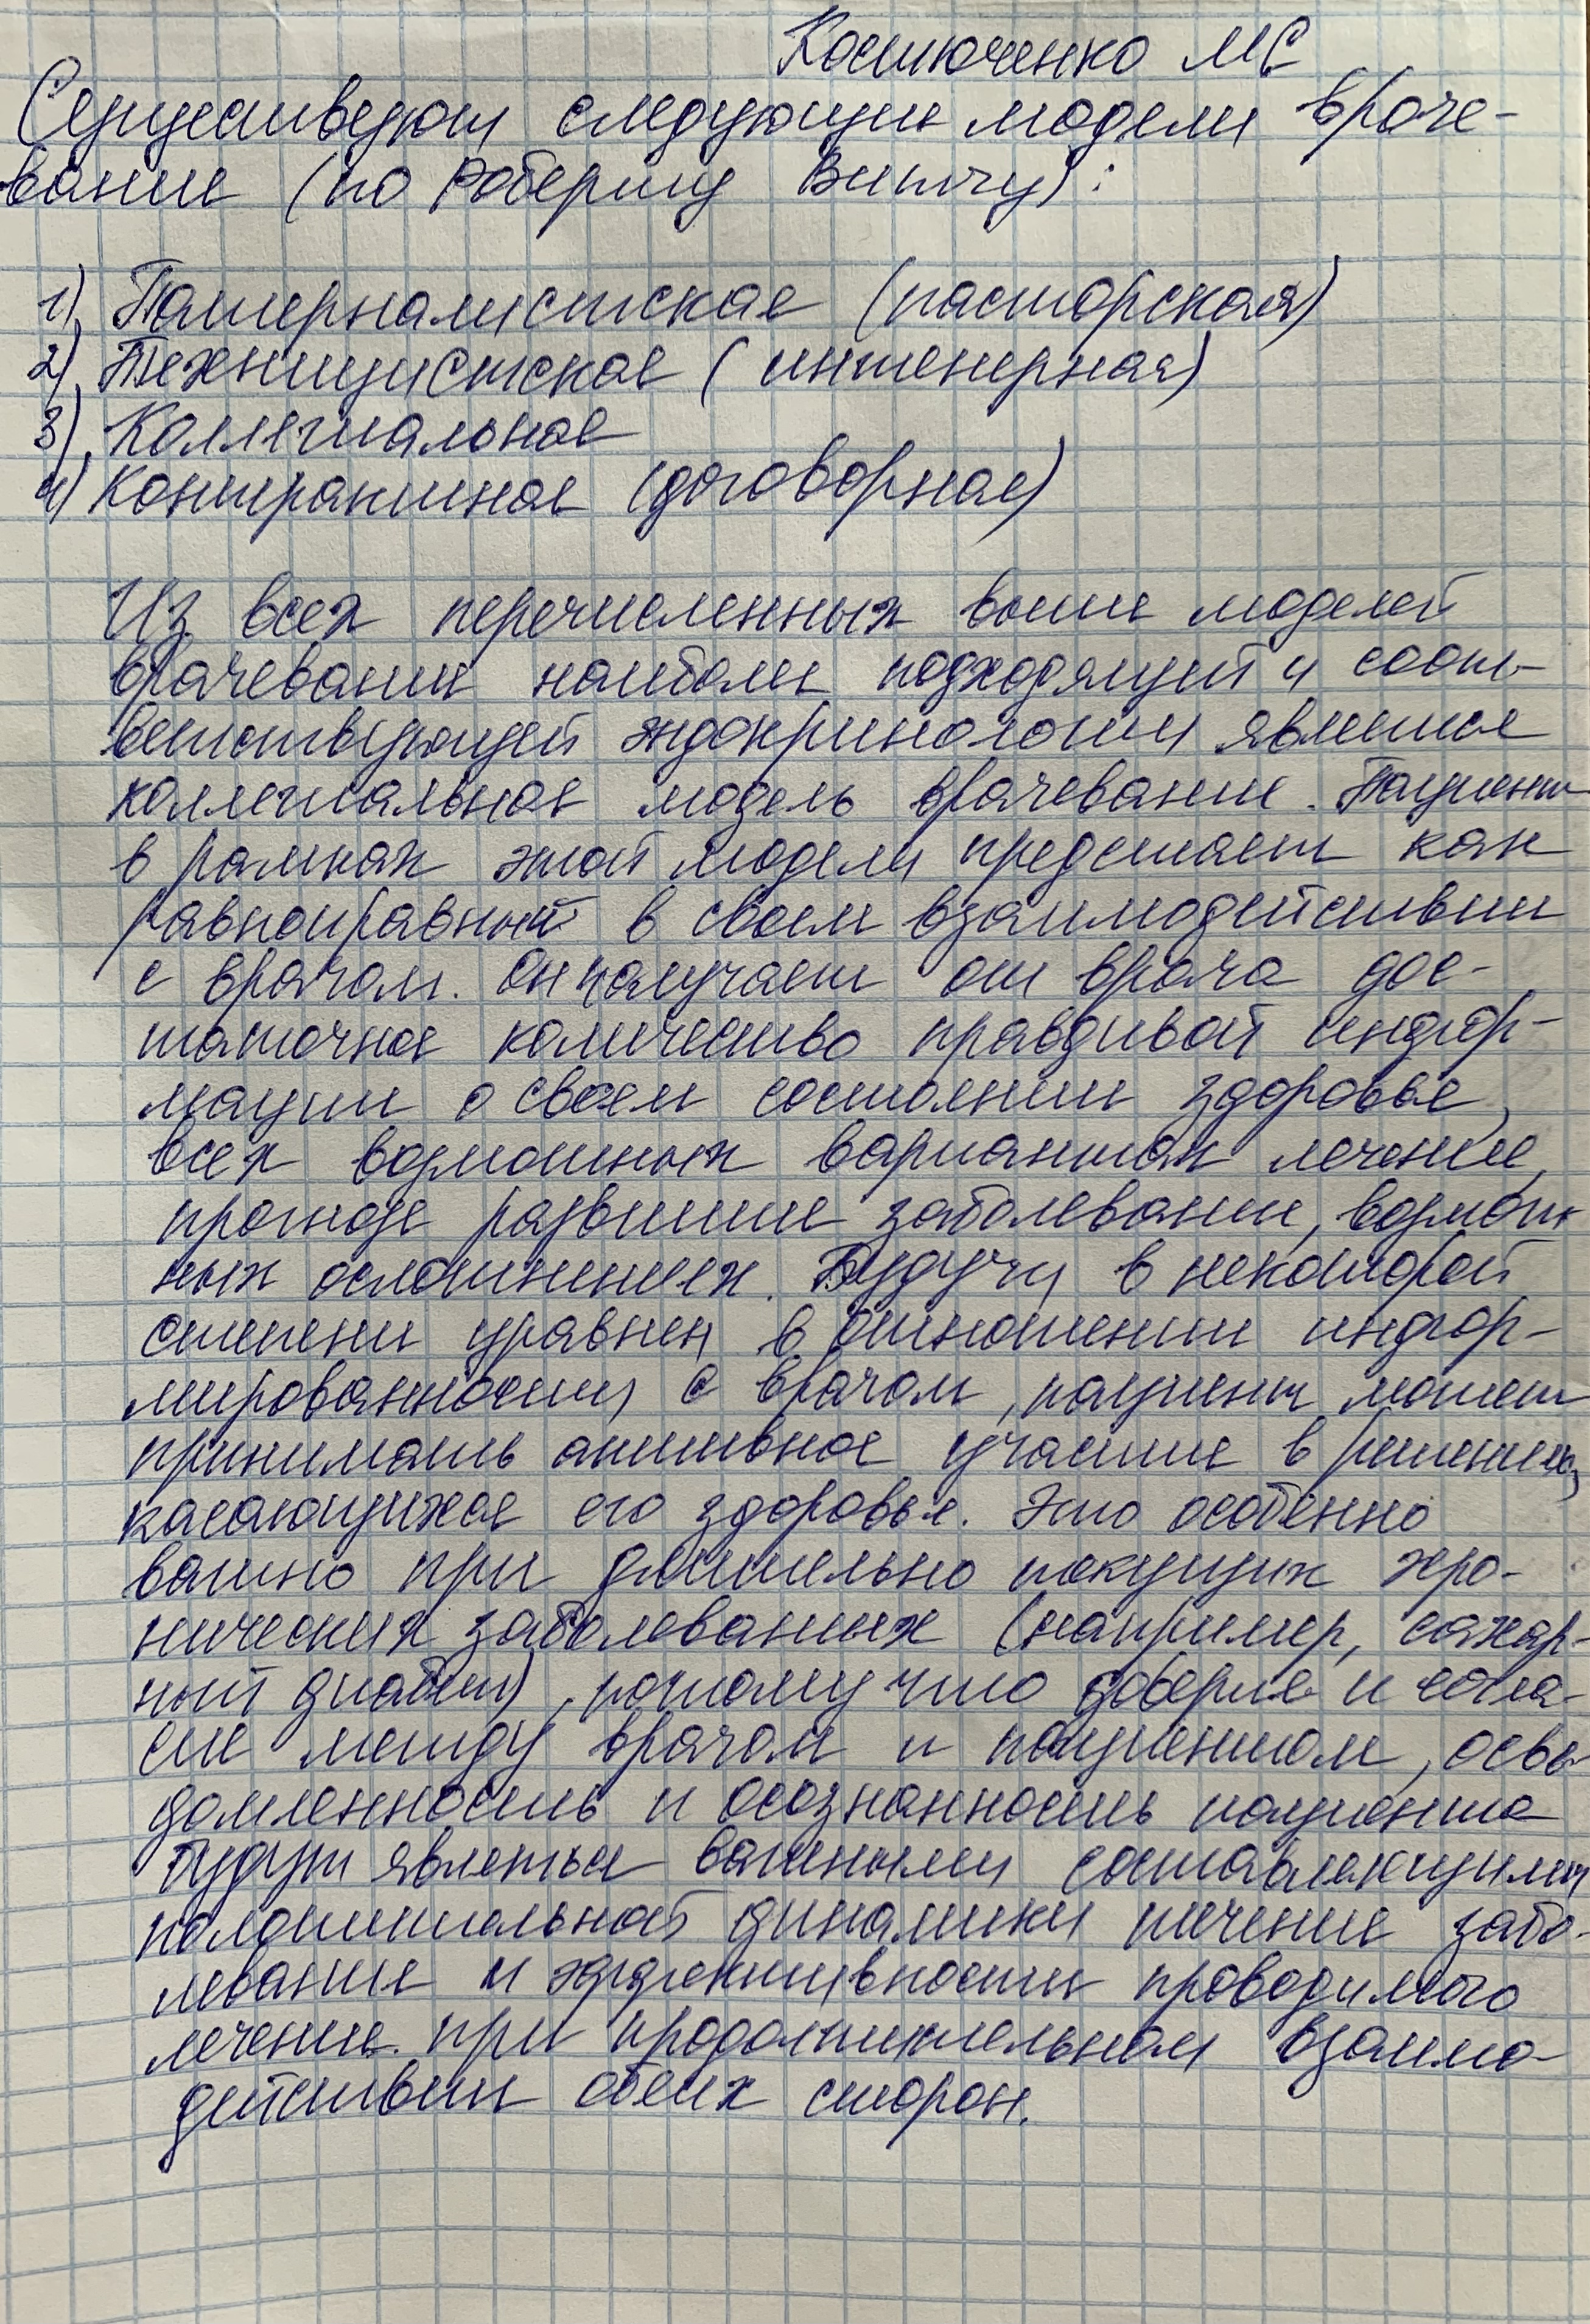 Костюченко МС
Существуют следующие модели враче-
вания (по Роберту Витчу):
1) Патерналистская (пасторская)
2) Техницистская (инженерная)
3) Коллегиальная
4) Контрактная (договорная)
Из всех перечисленных выше моделей
врачевания наиболее подходящей и соот-
ветствующей эндокринологии является
коллегиальная модель врачевания. Пациент
в рамках этой модели предстает как
равноправный в своем взаимодействии
с врачом. Он получает от врача дос-
таточное количество правдивой инфор-
мации о своем состоянии здоровья,
всех возможных вариантах лечения,
прогнозе развития заболевания, возмож-
ных осложнениях. Будучи в некоторой
степени уравнен в отношении инфор-
мированности с врачом, пациент может
принимать активное участие в решениях,
касающихся его здоровья. Это особенно
важно при длительно текущих хро-
нических заболеваниях (например, сахар-
ный диабет), потому что доверие и согла-
сие между врачом и пациентом, осве-
домленность и осознанность пациента
будут являться важными составляющими
положительной динамики течения забо-
левания и эффективности проводимого
лечения при продолжительном взаимо-
действии обеих сторон.